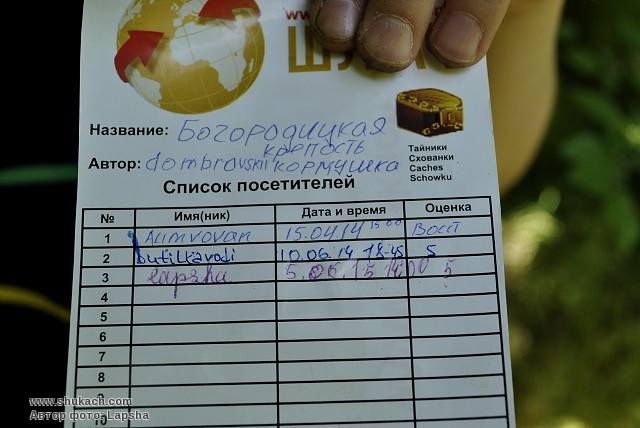 www
ШУ
Название: Богородицкая
крепость
Автор: dombrovskii кормушка
Тайники
Схованки
Caches
Schowku
Список посетителей
№ Имя(ник) Дата и время Оценка
1 Alimvovan 15.04.14 15:00
2 butilkavodi 10.06.14 12-45 5
3 lapsha 5.06.15 14:00 5
4
5
6
7
8
9
10
www.shukach.com
Автор фото: Lapsha